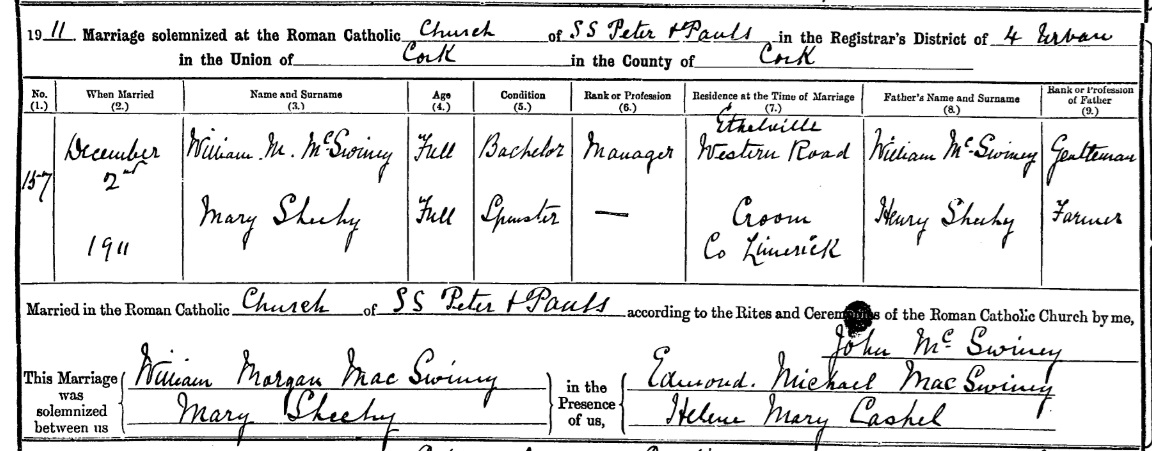 1911. Marriage solemnized at the Roman Catholic Church of SS Peter & Pauls in the Registrar's District of 4 Urban
in the Union of Cork in the County of Cork
No. (1.) When Married (2.) Name and Surname (3.) Age (4.) Condition (5.) Rank or Profession (6.) Residence at the Time of Marriage (7.) Father's Name and Surname (8.) Rank or Profession of Father (9.)
157 December 2nd 1911 William M. McSwiney Full Bachelor Manager Ethelville Western Road William McSwiney Gentleman
Mary Sheehy Full Spinster — Croom Co Limerick Henry Sheehy Farmer
Married in the Roman Catholic Church of SS Peter & Pauls according to the Rites and Ceremonies of the Roman Catholic Church by me,
John McSwiney
This Marriage was solemnized between us { William Morgan MacSwiney
Mary Sheehy
in the Presence of us, { Edmond. Michael MacSwiney
Helene Mary Cashel